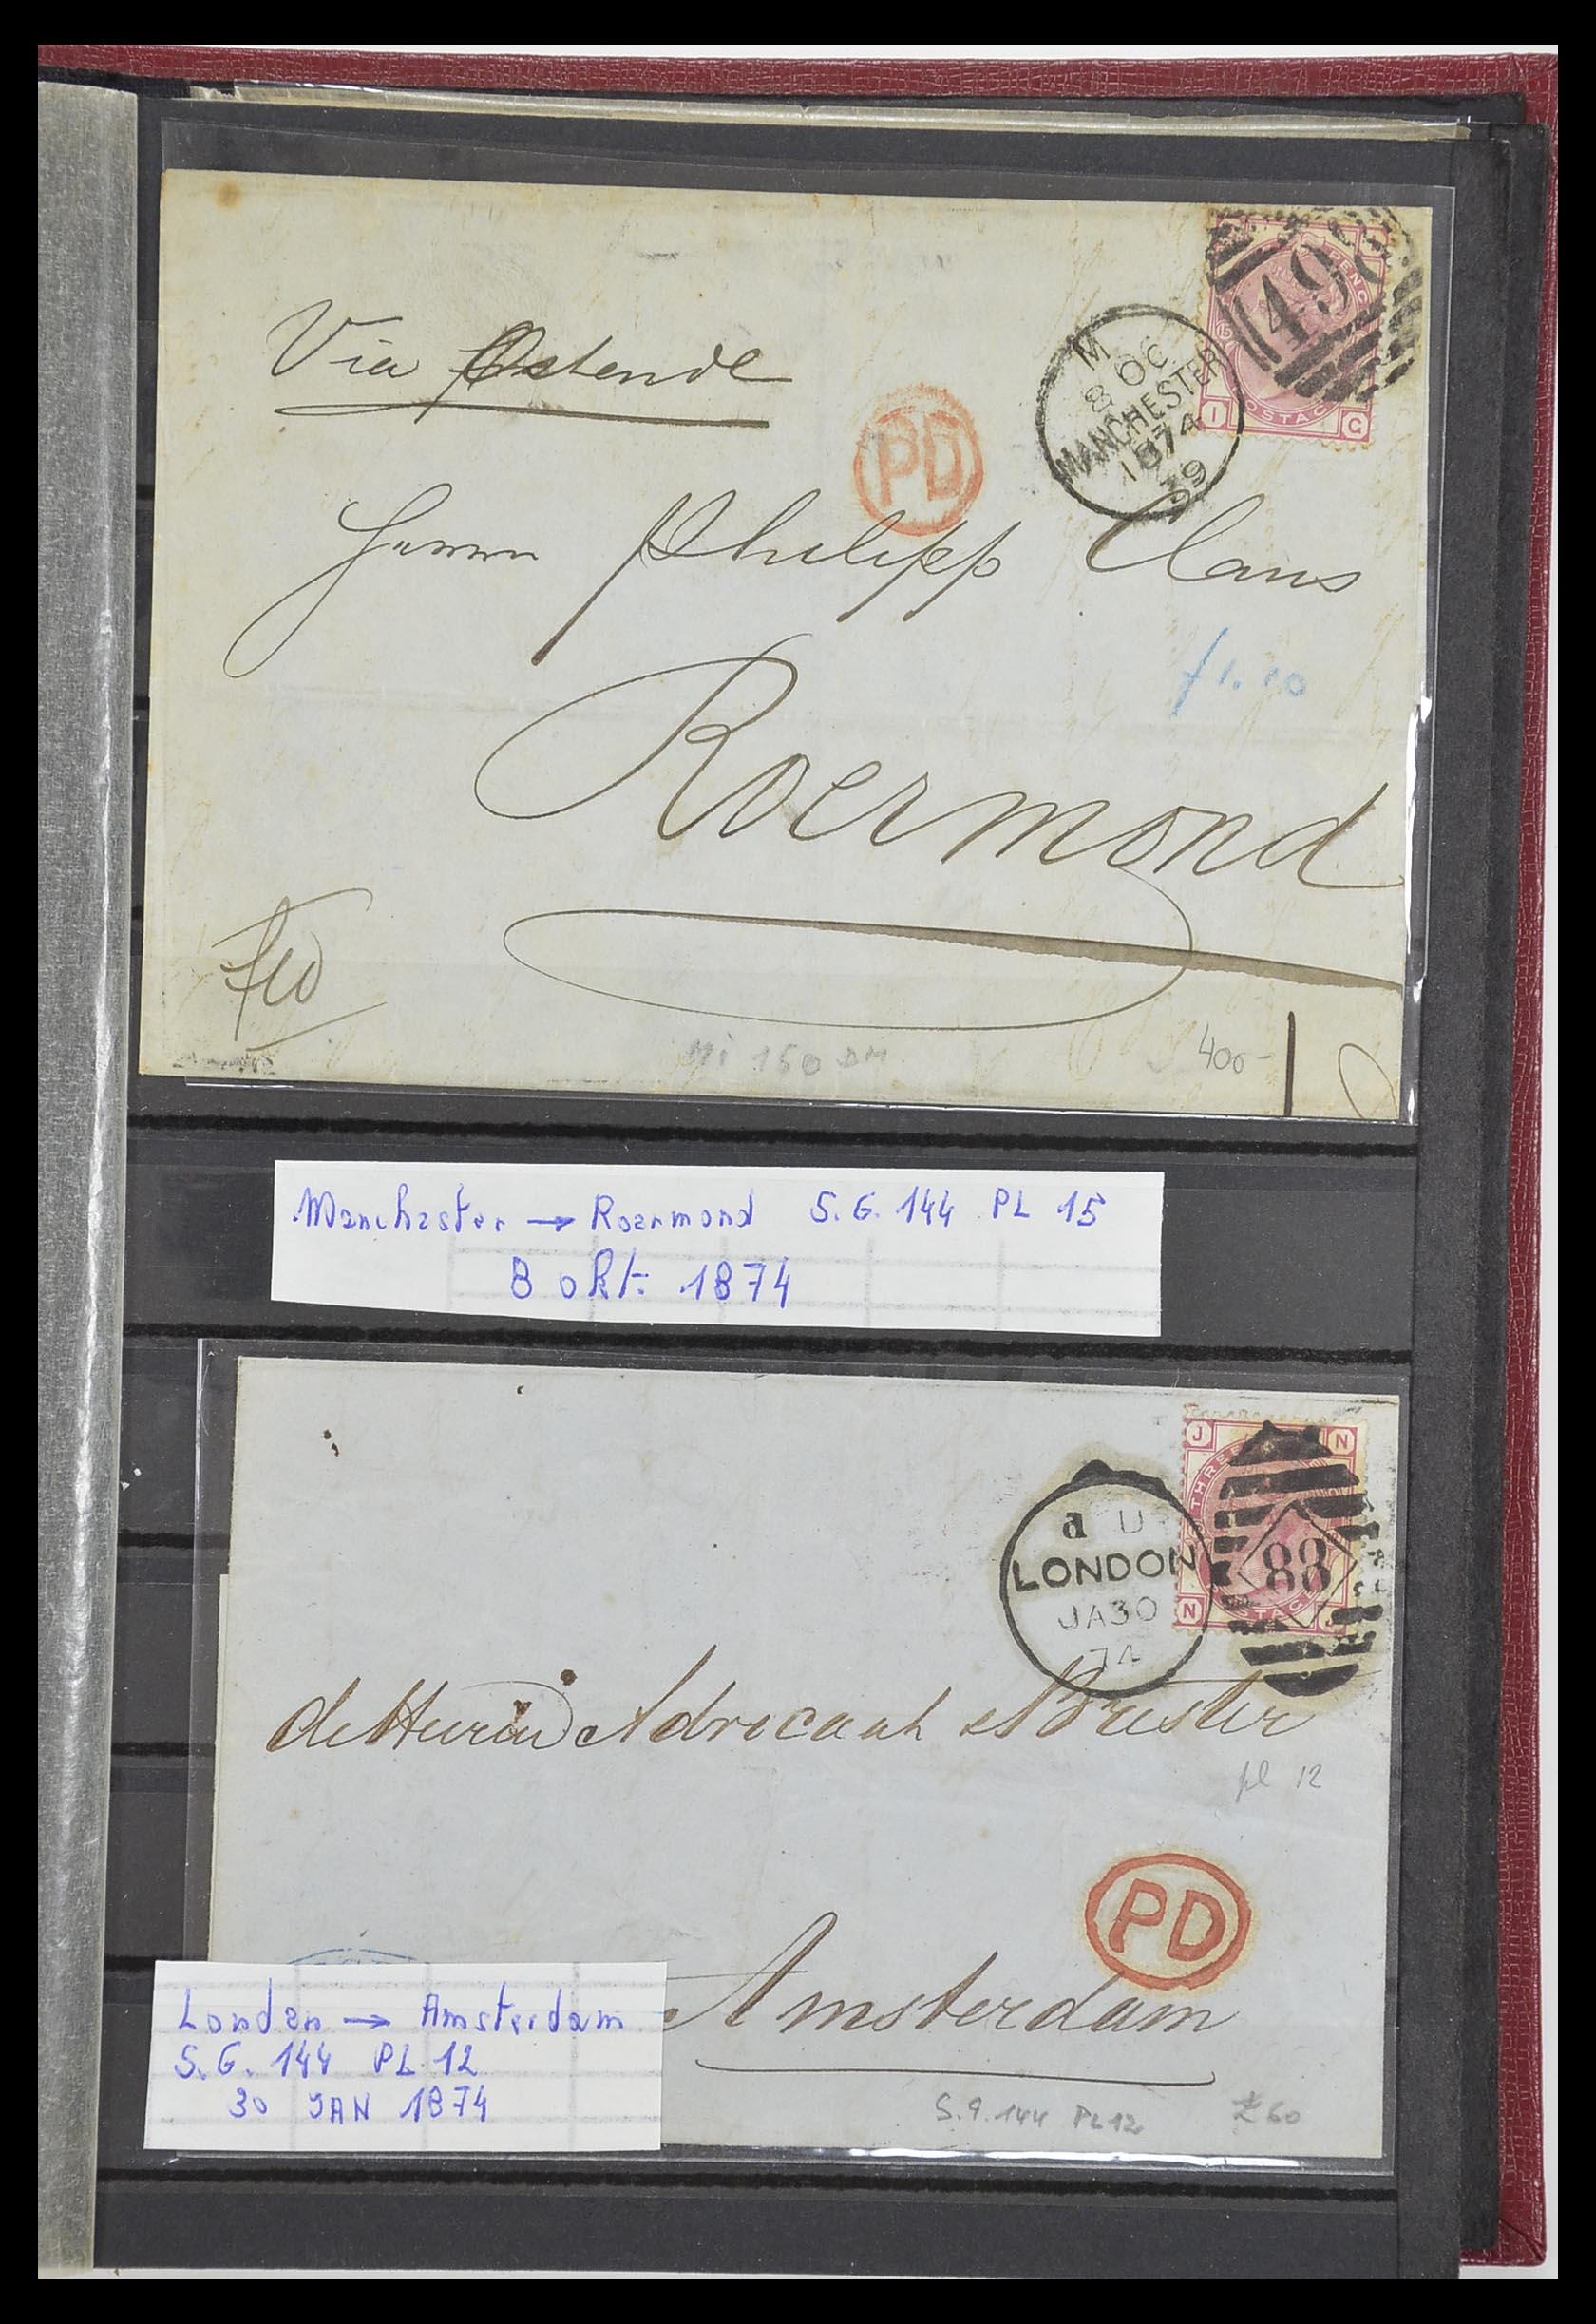 Via Ostende
PD
M
8 OC
MANCHESTER
1874
39
498
PENC
POSTAG
I G
Herrn Philipp Clans
f 1.10
Roermond
fco
Mi 150 DM
400-
Manchester → Roermond S.G. 144 PL 15
8 okt. 1874
J N
THREE
d U
LONDON
JA 30
74
88
N J
STAGE
de Heeren Advocaat & Brester
pl 12
PD
Amsterdam
Londen → Amsterdam
S.G. 144 PL 12
30 JAN 1874
S.G. 144 PL 12 £60